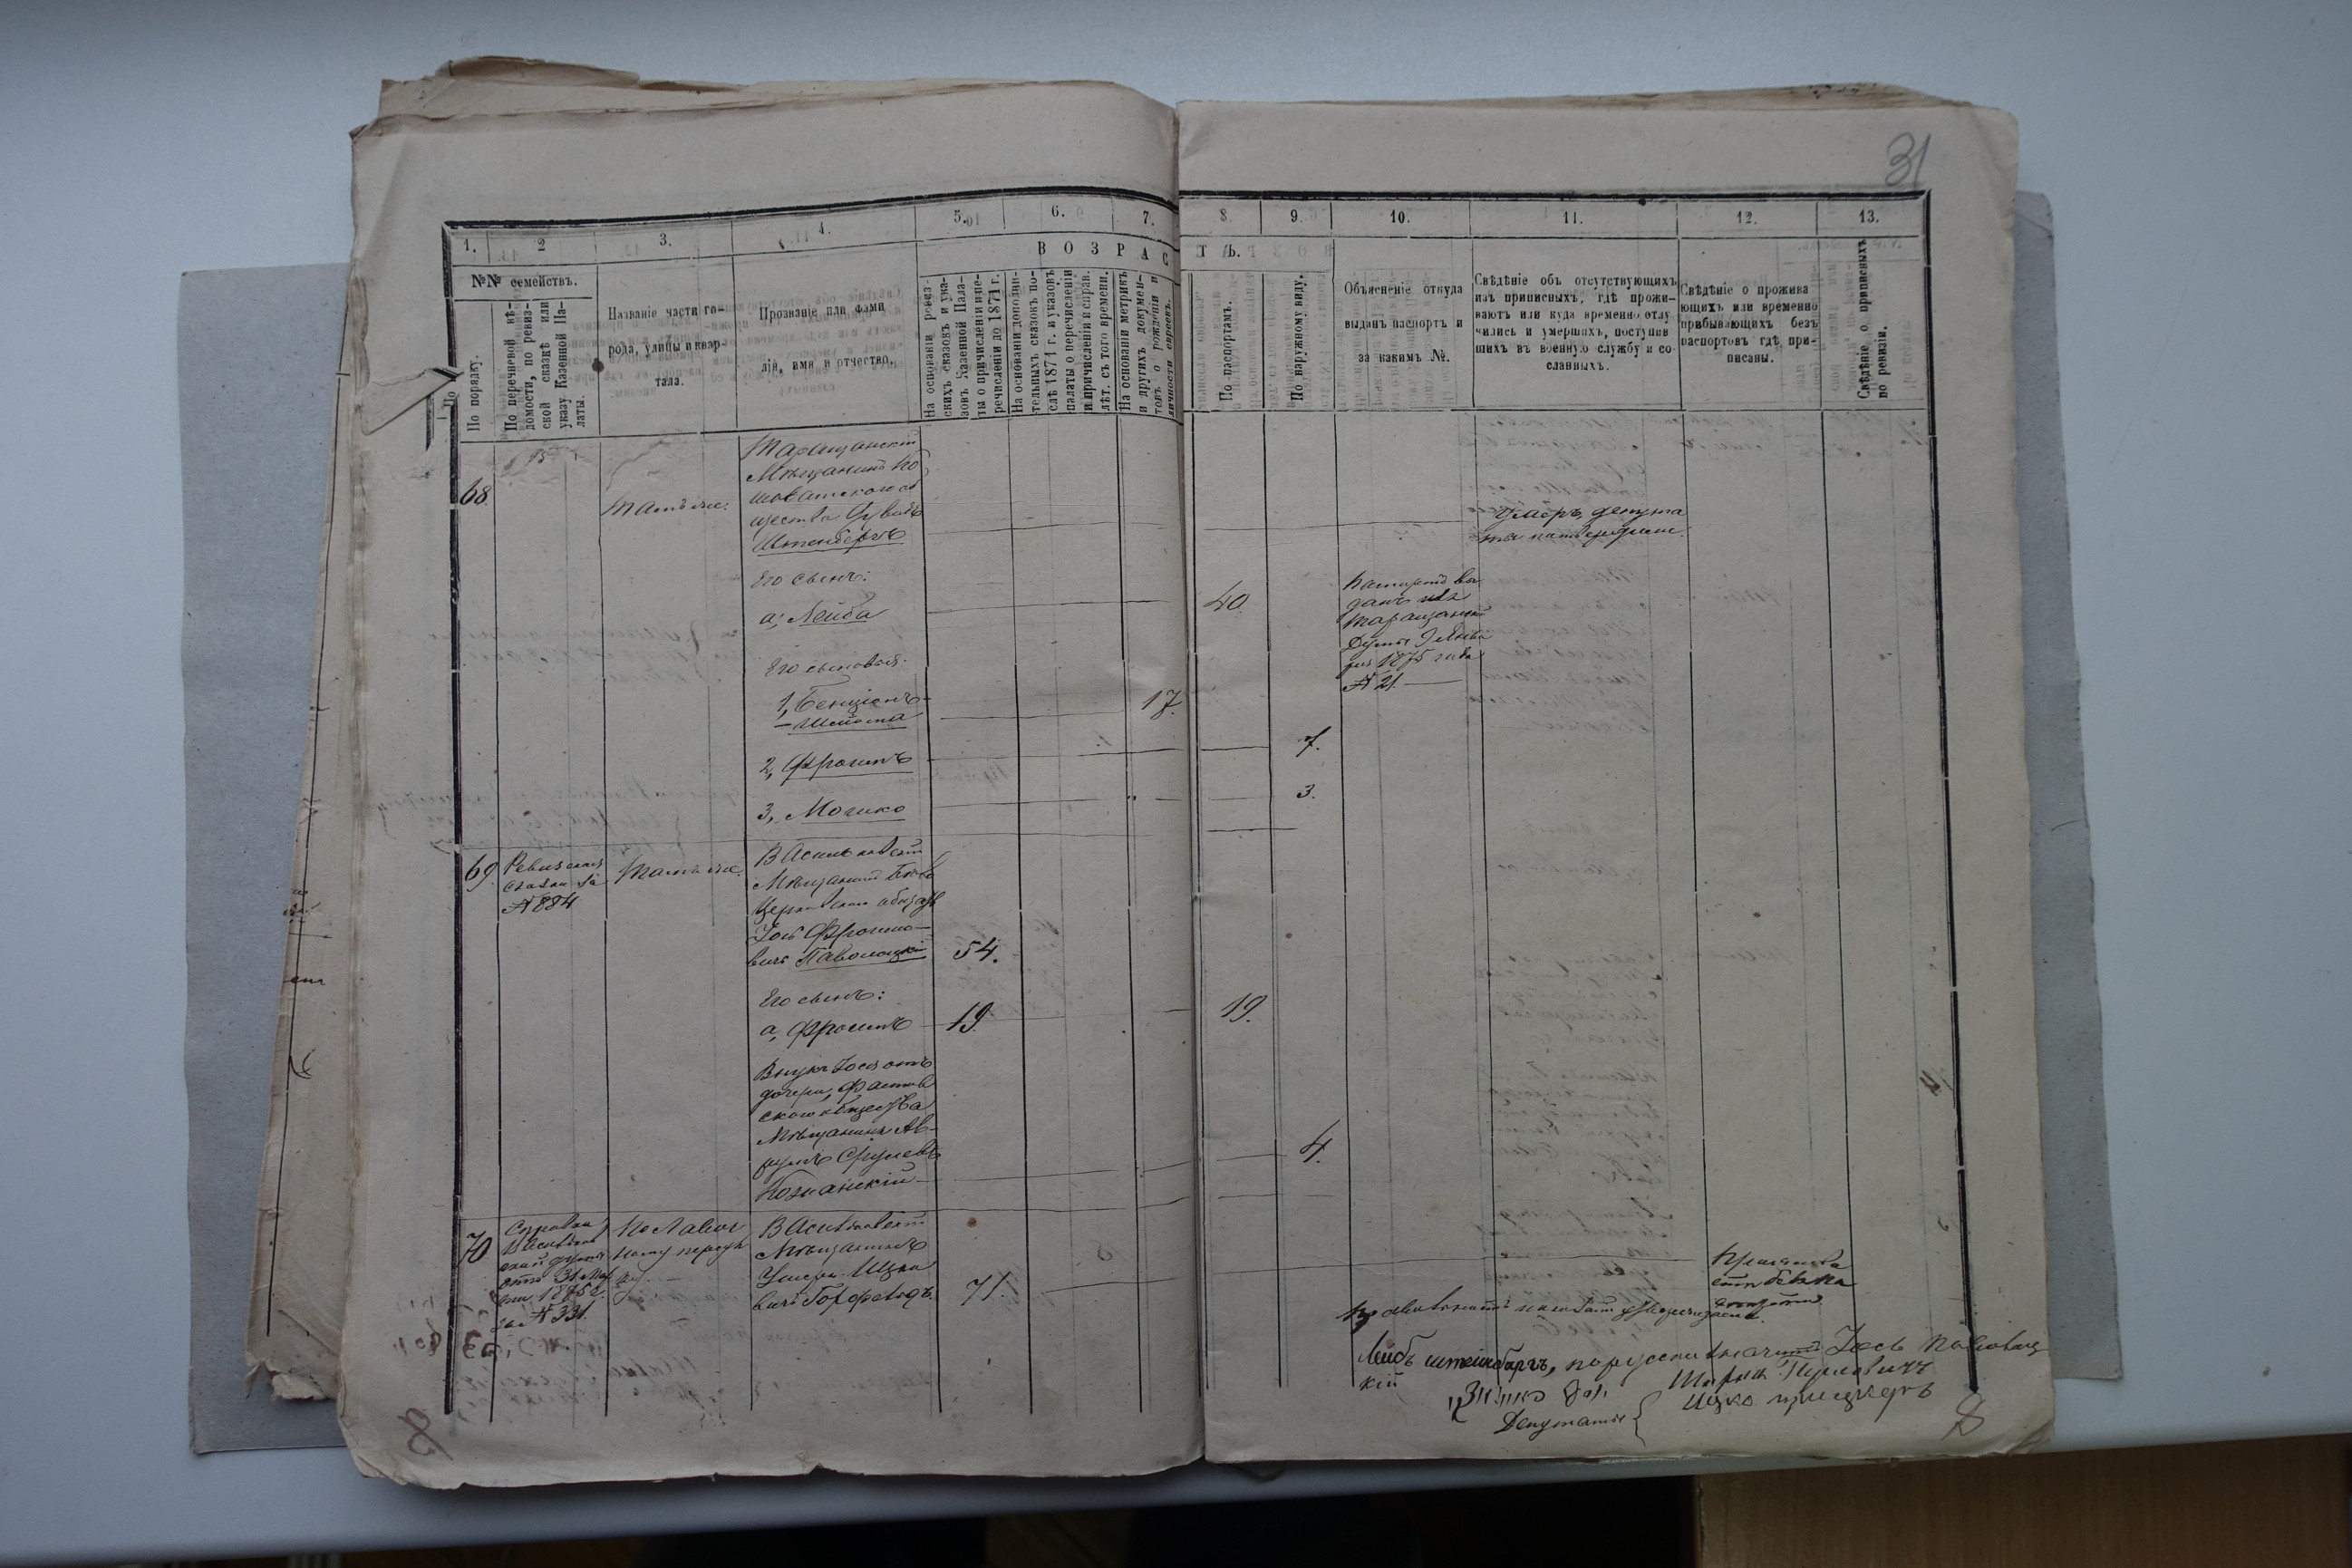 31
1.
2
3.
4.
5.
6.
7.
8.
9.
10.
11.
12.
13.
ВОЗРАС
ТЪ.
№№ семействъ.
По порядку.
По перечневой вѣ-
домости, по ревиз-
ской сказкѣ или
указу Казенной Па-
латы.
Названіе части го-
рода, улицы и квар-
тала.
Прозваніе или фами
лія, имя и отчество.
На основаніи ревиз-
скихъ сказокъ и ука-
зовъ Казенной Пала-
ты о причисленіи и пе-
речисленіи до 1874 г.
На основаніи дополни-
тельныхъ сказокъ по-
слѣ 1874 г. и указовъ
палаты о перечисленіи
и причисленіи и справ.
лѣт. съ того времени.
На основаніи метрикъ
и другихъ докумен-
товъ о рожденіи и
личности евреевъ.
По паспортамъ.
По наружному виду.
Объясненіе откуда
выданъ паспортъ и
за какимъ №.
Свѣдѣніе объ отсутствующихъ
изъ приписныхъ, гдѣ прожи-
ваютъ или куда временно отлу
чились и умершихъ, поступив
шихъ въ военную службу и со-
сланныхъ.
Свѣдѣніе о прожива
ющихъ или временно
прибывающихъ безъ
паспортовъ гдѣ при-
писаны.
Свѣдѣніе о приписныхъ
по ревизіи.
68.
Тамъ же.
Таращанскій
Мѣщанинъ
Штенбергъ
Умеръ, депута
ты подтвердили.
Его сынъ:
а, Лейба
40.
Паспортъ вы
данъ изъ
Таращанской
Думы 9 Янва
ря 1875 года
№ 21.
Его сыновья:
1, Бенціонъ-
-Шломма
17.
2, Фроимъ
7.
3, Мошко
3.
69.
Ревизская
сказка за
№ 884
Тамъ же.
Васильковскій
Мѣщанинъ Бѣло
Церковскаго общества
Іось Фроимо-
вичъ Паволоцкій
54.
Его сынъ:
а, Фроимъ
19.
19.
Внукъ Іося отъ
дочери, Фастов
скаго общества
Мѣщанинъ Ав-
румъ Срулевъ
Познанскій
4.
70
Справка
Васильков
ской думы
отъ 31 Мар
та 1875 г.
за № 331.
Васильковскій
Мѣщанинъ
Ушеръ Ицко
вичъ Горфельдъ.
71.
Лейбъ штейнбаргъ, Іось Паволоц
кій
Депутаты {
Ицко
8